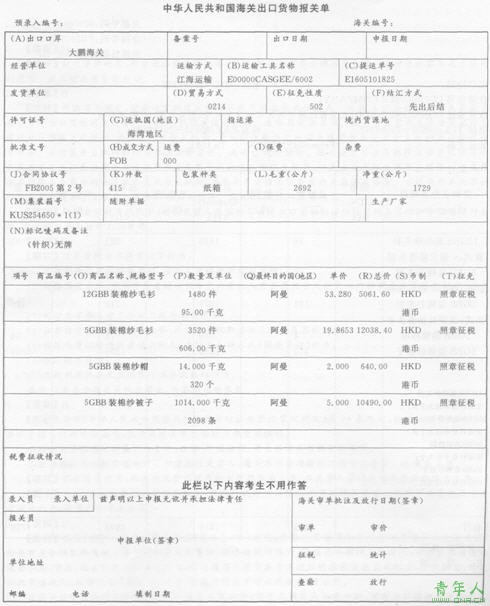 中华人民共和国海关出口货物报关单
预录入编号： 海关编号：
(A)出口口岸 备案号 出口日期 申报日期
大鹏海关
经营单位 运输方式 (B)运输工具名称 (C)提运单号
江海运输 E00000CASGEE/6002 E1605101825
发货单位 (D)贸易方式 (E)征免性质 (F)结汇方式
0214 502 先出后结
许可证号 (G)运抵国(地区) 指运港 境内货源地
海湾地区
批准文号 (H)成交方式 运费 (I)保费 杂费
FOB 000
(J)合同协议号 (K)件数 包装种类 (L)毛重(公斤) 净重(公斤)
FB2005 第 2 号 415 纸箱 2692 1729
(M)集装箱号 随附单据 生产厂家
KUS254650＊1(1)
(N)标记唛码及备注
(针织)无牌
项号 商品编号(O)商品名称、规格型号 (P)数量及单位 (Q)最终目的国(地区) 单价 (R)总价 (S)币制 (T)征免
12GBB 装棉纱毛衫 1480 件 阿曼 53.280 5061.60 HKD 照章征税
95.00 千克 港币
5GBB 装棉纱毛衫 3520 件 阿曼 19.8653 12038.40 HKD 照章征税
606.00 千克 港币
5GBB 装棉纱帽 14.000 千克 阿曼 2.000 640.00 HKD 照章征税
320 个 港币
5GBB 装棉纱被子 1014.000 千克 阿曼 5.000 10490.00 HKD 照章征税
2098 条 港币
税费征收情况
此栏以下内容考生不用作答
录入员 录入单位 兹声明以上申报无讹并承担法律责任 海关审单批注及放行日期(签章)
报关员
审单 审价
申报单位(签章)
征税 统计
单位地址
查验 放行
邮编 电话 填制日期
青年人